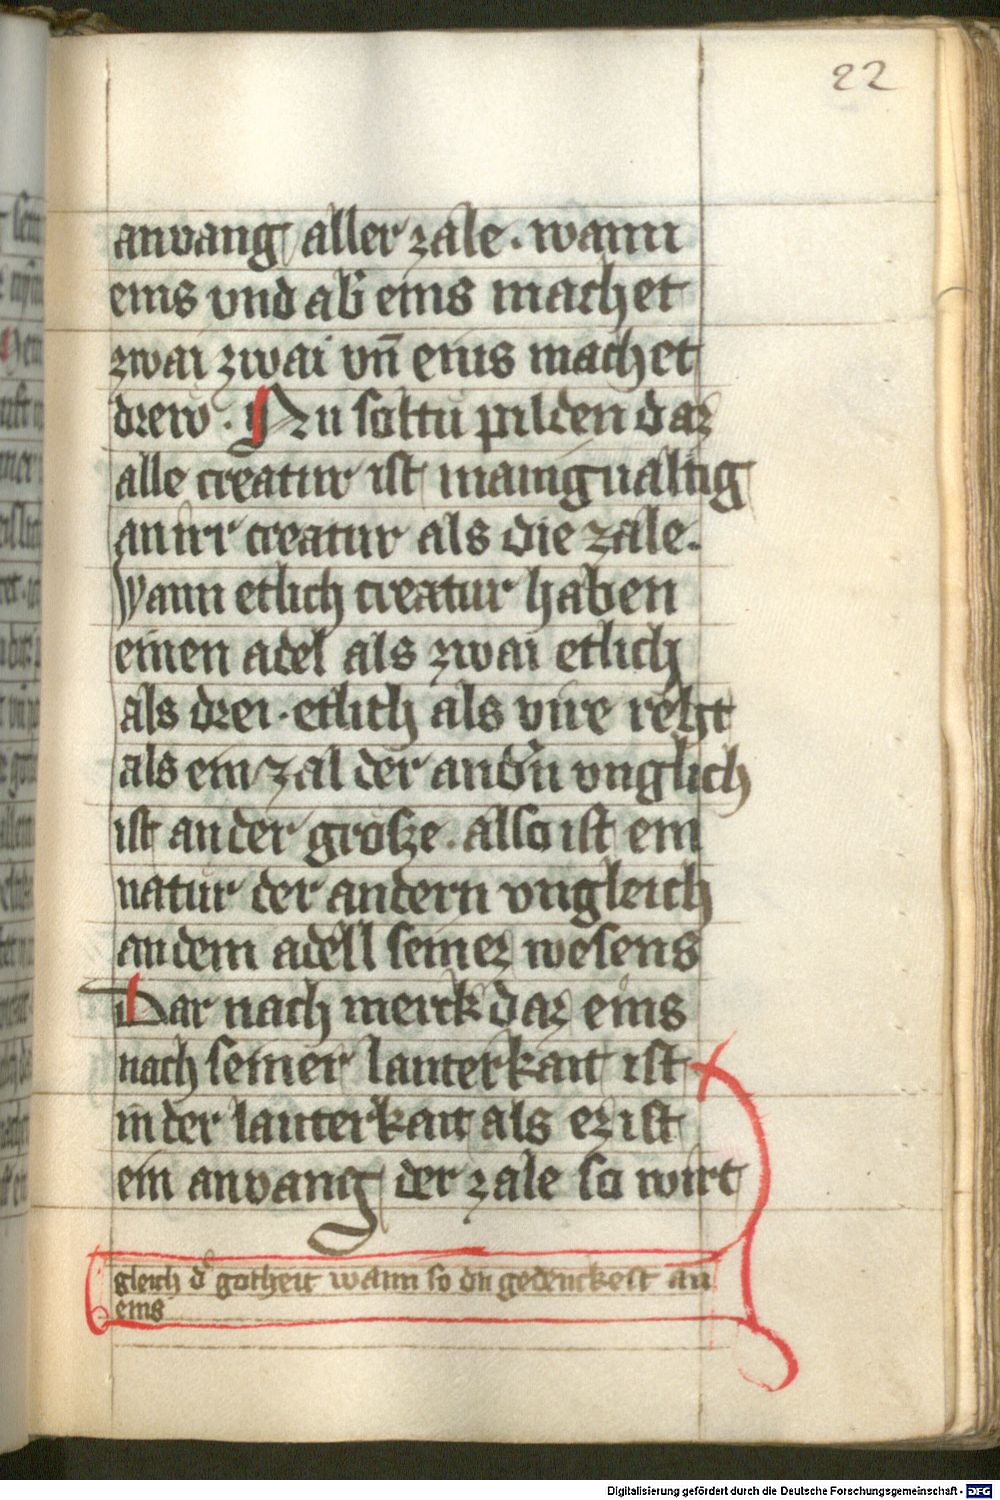 22
anvang aller zale . wann
eins vnd ab̉ eins machet
zwai zwai vn̄ eins machet
drew . Nu soltu pilden daz
alle creatur ist manigualtig
an irr creatur als die zale .
Wann etlich creatur haben
einen adel als zwai etlich
als drei . etlich als vire reht
als ein zal der and̉n vnglich
ist an der grösze . also ist ein
natur der andern vngleich
an dem adell seinez wesens
Dar nach merck daz eins
nach seiner lauterkait ist
in der lauterkait als ez ist
ein anvang der zale so wirt
gleich d̉ gotheit wann so du gedenckest an
eins
Digitalisierung gefördert durch die Deutsche Forschungsgemeinschaft - DFG